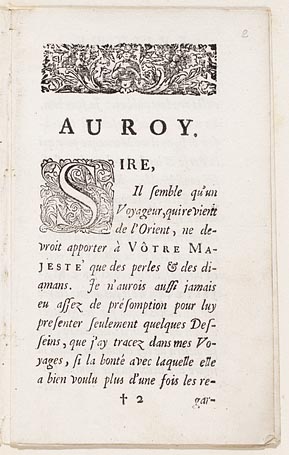 2
AU ROY.
SIRE,
Il semble qu'un
Voyageur, qui revient
de l'Orient, ne de-
vroit apporter à VÔTRE MA-
JESTÉ que des perles & des dia-
mans. Je n'aurois aussi jamais
eu assez de présomption pour luy
presenter seulement quelques Des-
seins, que j'ay tracez dans mes Vo-
yages, si la bonté avec laquelle elle
a bien voulu plus d'une fois les re-
† 2
gar-